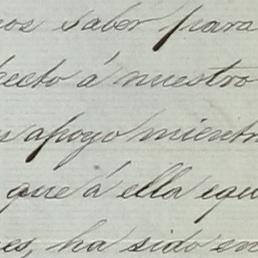 nos saber para
pecto á nuestro
apoyo mientr
que á ella equ
es, ha sido en